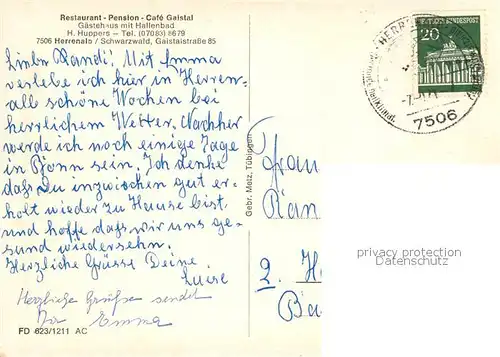 Restaurant - Pension - Café Gaistal
Gästehaus mit Hallenbad
H. Huppers — Tel. (07083) 8679
7506 Herrenalb / Schwarzwald, Gaistalstraße 85
Liebe Randi! Mit Emma
verlebe ich hier in Herren-
alb schöne Wochen bei
herrlichem Wetter. Nachher
werde ich noch einige Tage
in Bonn sein. Ich denke
daß Du inzwischen gut er-
holt wieder zu Hause bist
und hoffe daß wir uns ge-
sund wiedersehn.
Herzliche Grüsse Deine
Luise
Herzliche Grüße sendet
Emma
FD 623/1211 AC
Gebr. Metz, Tübingen
DEUTSCHE BUNDESPOST
20
HERR
7506
Frau
Ran
2. H
Ba
privacy protection
Datenschutz